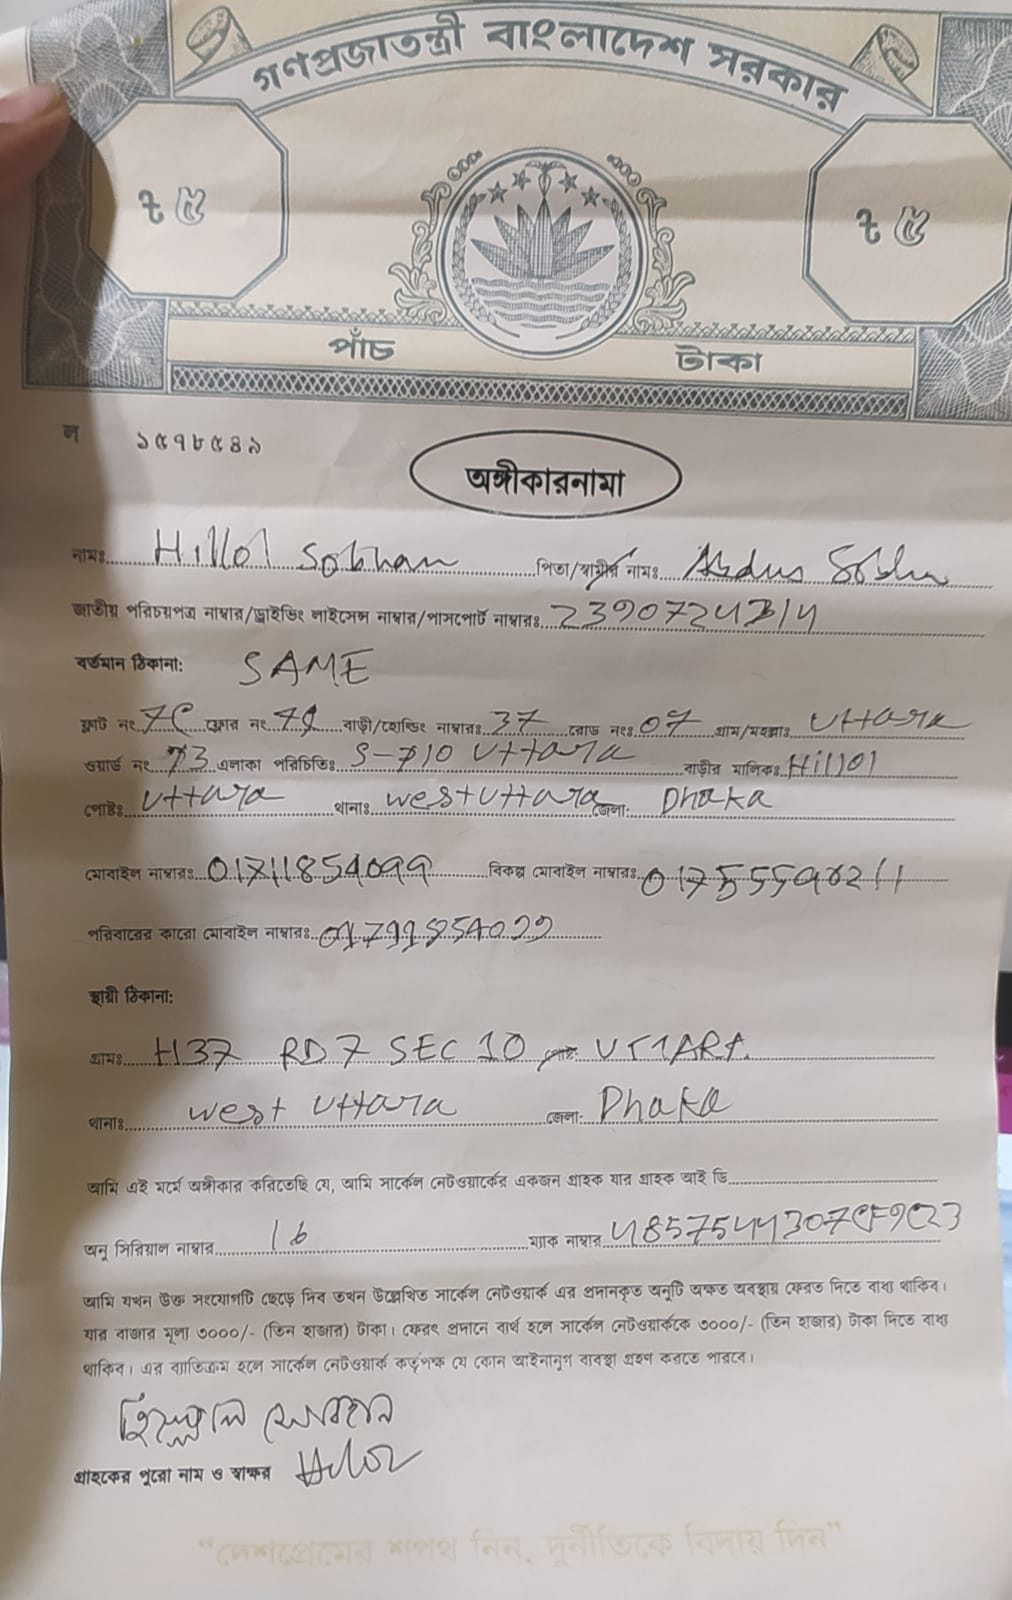 গণপ্রজাতন্ত্রী বাংলাদেশ সরকার
৳ ৫ ৳ ৫
পাঁচ টাকা
ল ১৫৭৮৫৪৯
অঙ্গীকারনামা
নামঃ Hillol Sobhan পিতা/স্বামীর নামঃ Abdus Sobhan
জাতীয় পরিচয়পত্র নাম্বার/ড্রাইভিং লাইসেন্স নাম্বার/পাসপোর্ট নাম্বারঃ
বর্তমান ঠিকানা: SAME
ফ্লাট নং 7C ফ্লোর নং বাড়ী/হোল্ডিং নাম্বারঃ 37 রোড নংঃ 07 গ্রাম/মহল্লাঃ Uttara
ওয়ার্ড নং এলাকা পরিচিতিঃ Uttara বাড়ীর মালিকঃ Hillol
পোষ্টঃ Uttara থানাঃ west Uttara জেলা: Dhaka
মোবাইল নাম্বারঃ 01711854099 বিকল্প মোবাইল নাম্বারঃ
পরিবারের কারো মোবাইল নাম্বারঃ
স্থায়ী ঠিকানা:
গ্রামঃ H37 RD7 SEC 10 UTTARA
থানাঃ west Uttara জেলা: Dhaka
আমি এই মর্মে অঙ্গীকার করিতেছি যে, আমি সার্কেল নেটওয়ার্কের একজন গ্রাহক যার গ্রাহক আই ডি
অনু সিরিয়াল নাম্বার 16 ম্যাক নাম্বার 48575444307CF9C23
আমি যখন উক্ত সংযোগটি ছেড়ে দিব তখন উল্লেখিত সার্কেল নেটওয়ার্ক এর প্রদানকৃত অনুটি অক্ষত অবস্থায় ফেরত দিতে বাধ্য থাকিব।
যার বাজার মূল্য ৩০০০/- (তিন হাজার) টাকা। ফেরৎ প্রদানে ব্যর্থ হলে সার্কেল নেটওয়ার্ককে ৩০০০/- (তিন হাজার) টাকা দিতে বাধ্য
থাকিব। এর ব্যতিক্রম হলে সার্কেল নেটওয়ার্ক কর্তৃপক্ষ যে কোন আইনানুগ ব্যবস্থা গ্রহণ করতে পারবে।
হিল্লোল সোবহান
গ্রাহকের পুরো নাম ও স্বাক্ষর
“দেশপ্রেমের শপথ নিন, দুর্নীতিকে বিদায় দিন”